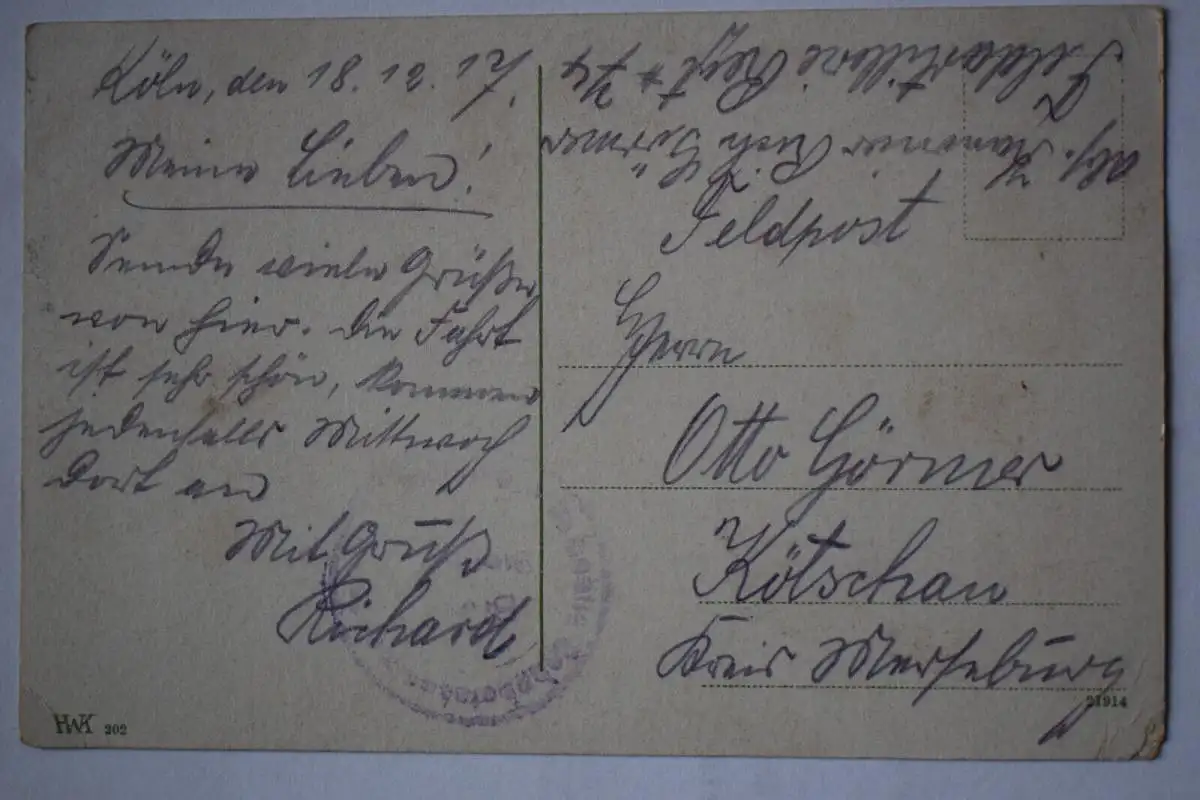 Köln, den 18. 12. 17.
Meine Lieben!
Sende viele Grüße
von hier. Die Fahrt
ist sehr schön, kommen
jedenfalls Mittwoch
dort an
Mit Gruß
Richard
Abs. Kanonier Rich. Görmer
Feldartillerie Regt
Feldpost
Herrn
Otto Görmer
Kötschau
Kreis Merseburg
21914
HWK 202